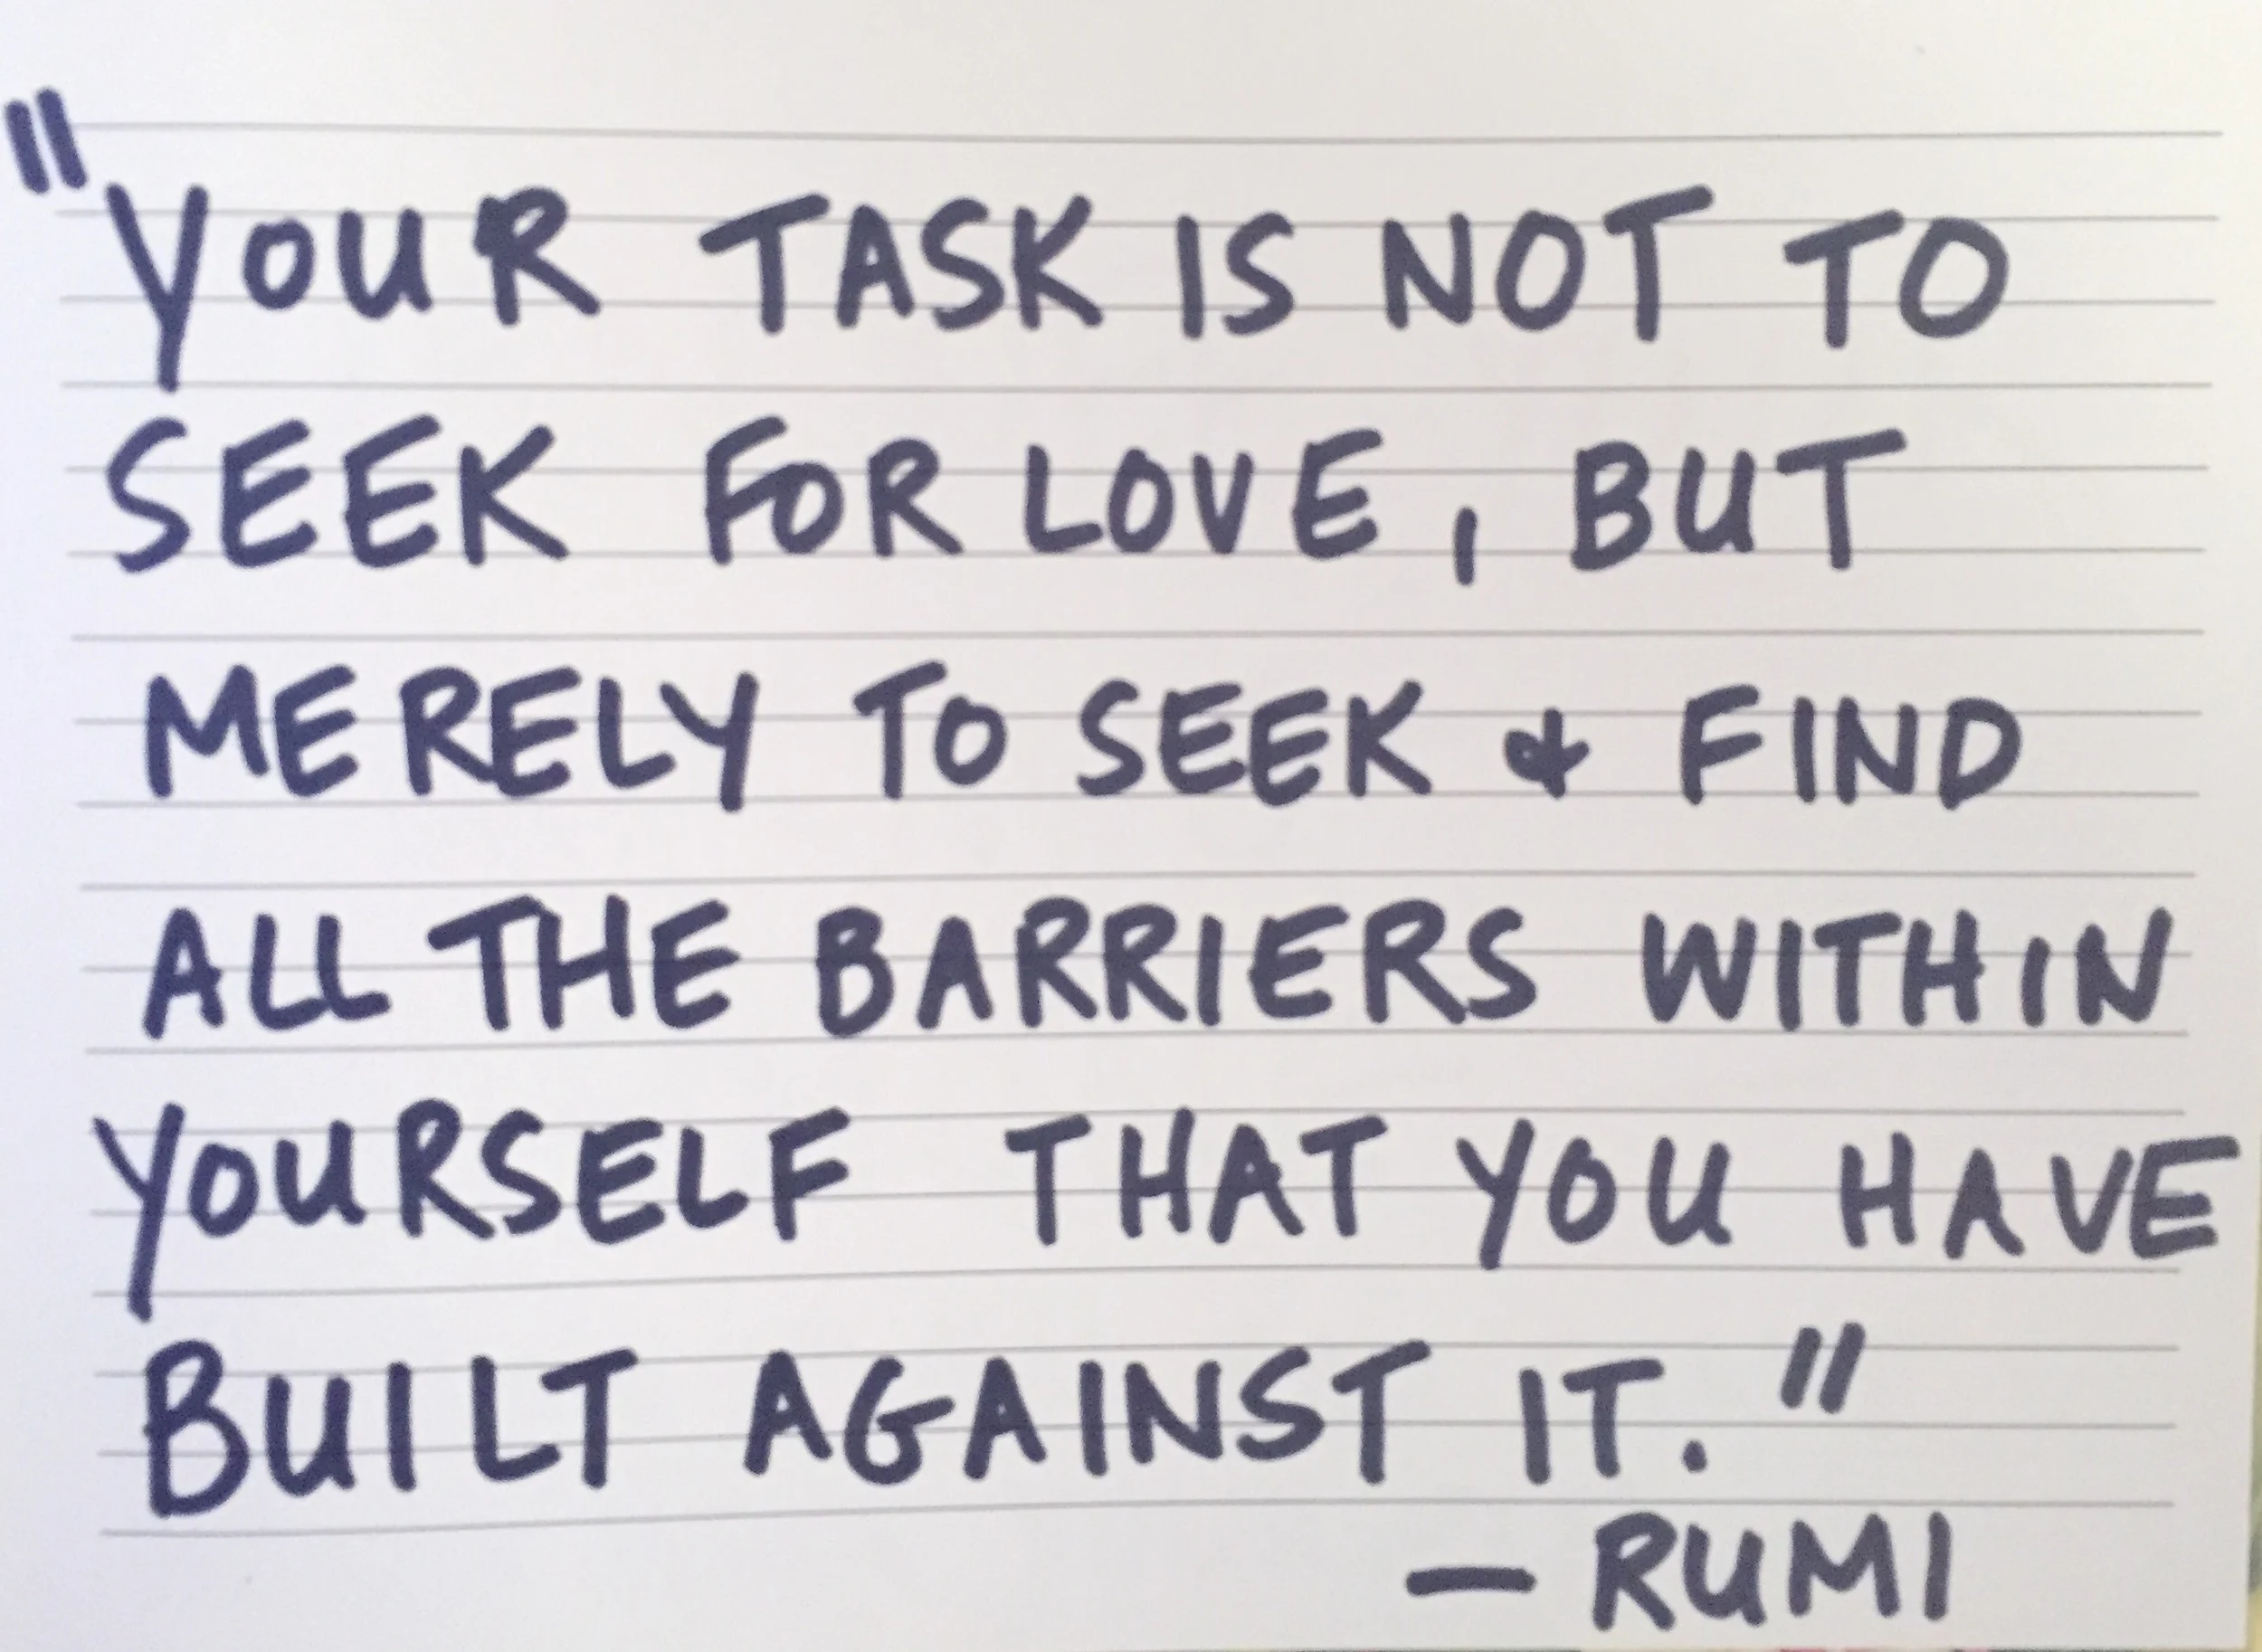 "YOUR TASK IS NOT TO
SEEK FOR LOVE, BUT
MERELY TO SEEK & FIND
ALL THE BARRIERS WITHIN
YOURSELF THAT YOU HAVE
BUILT AGAINST IT."
— RUMI